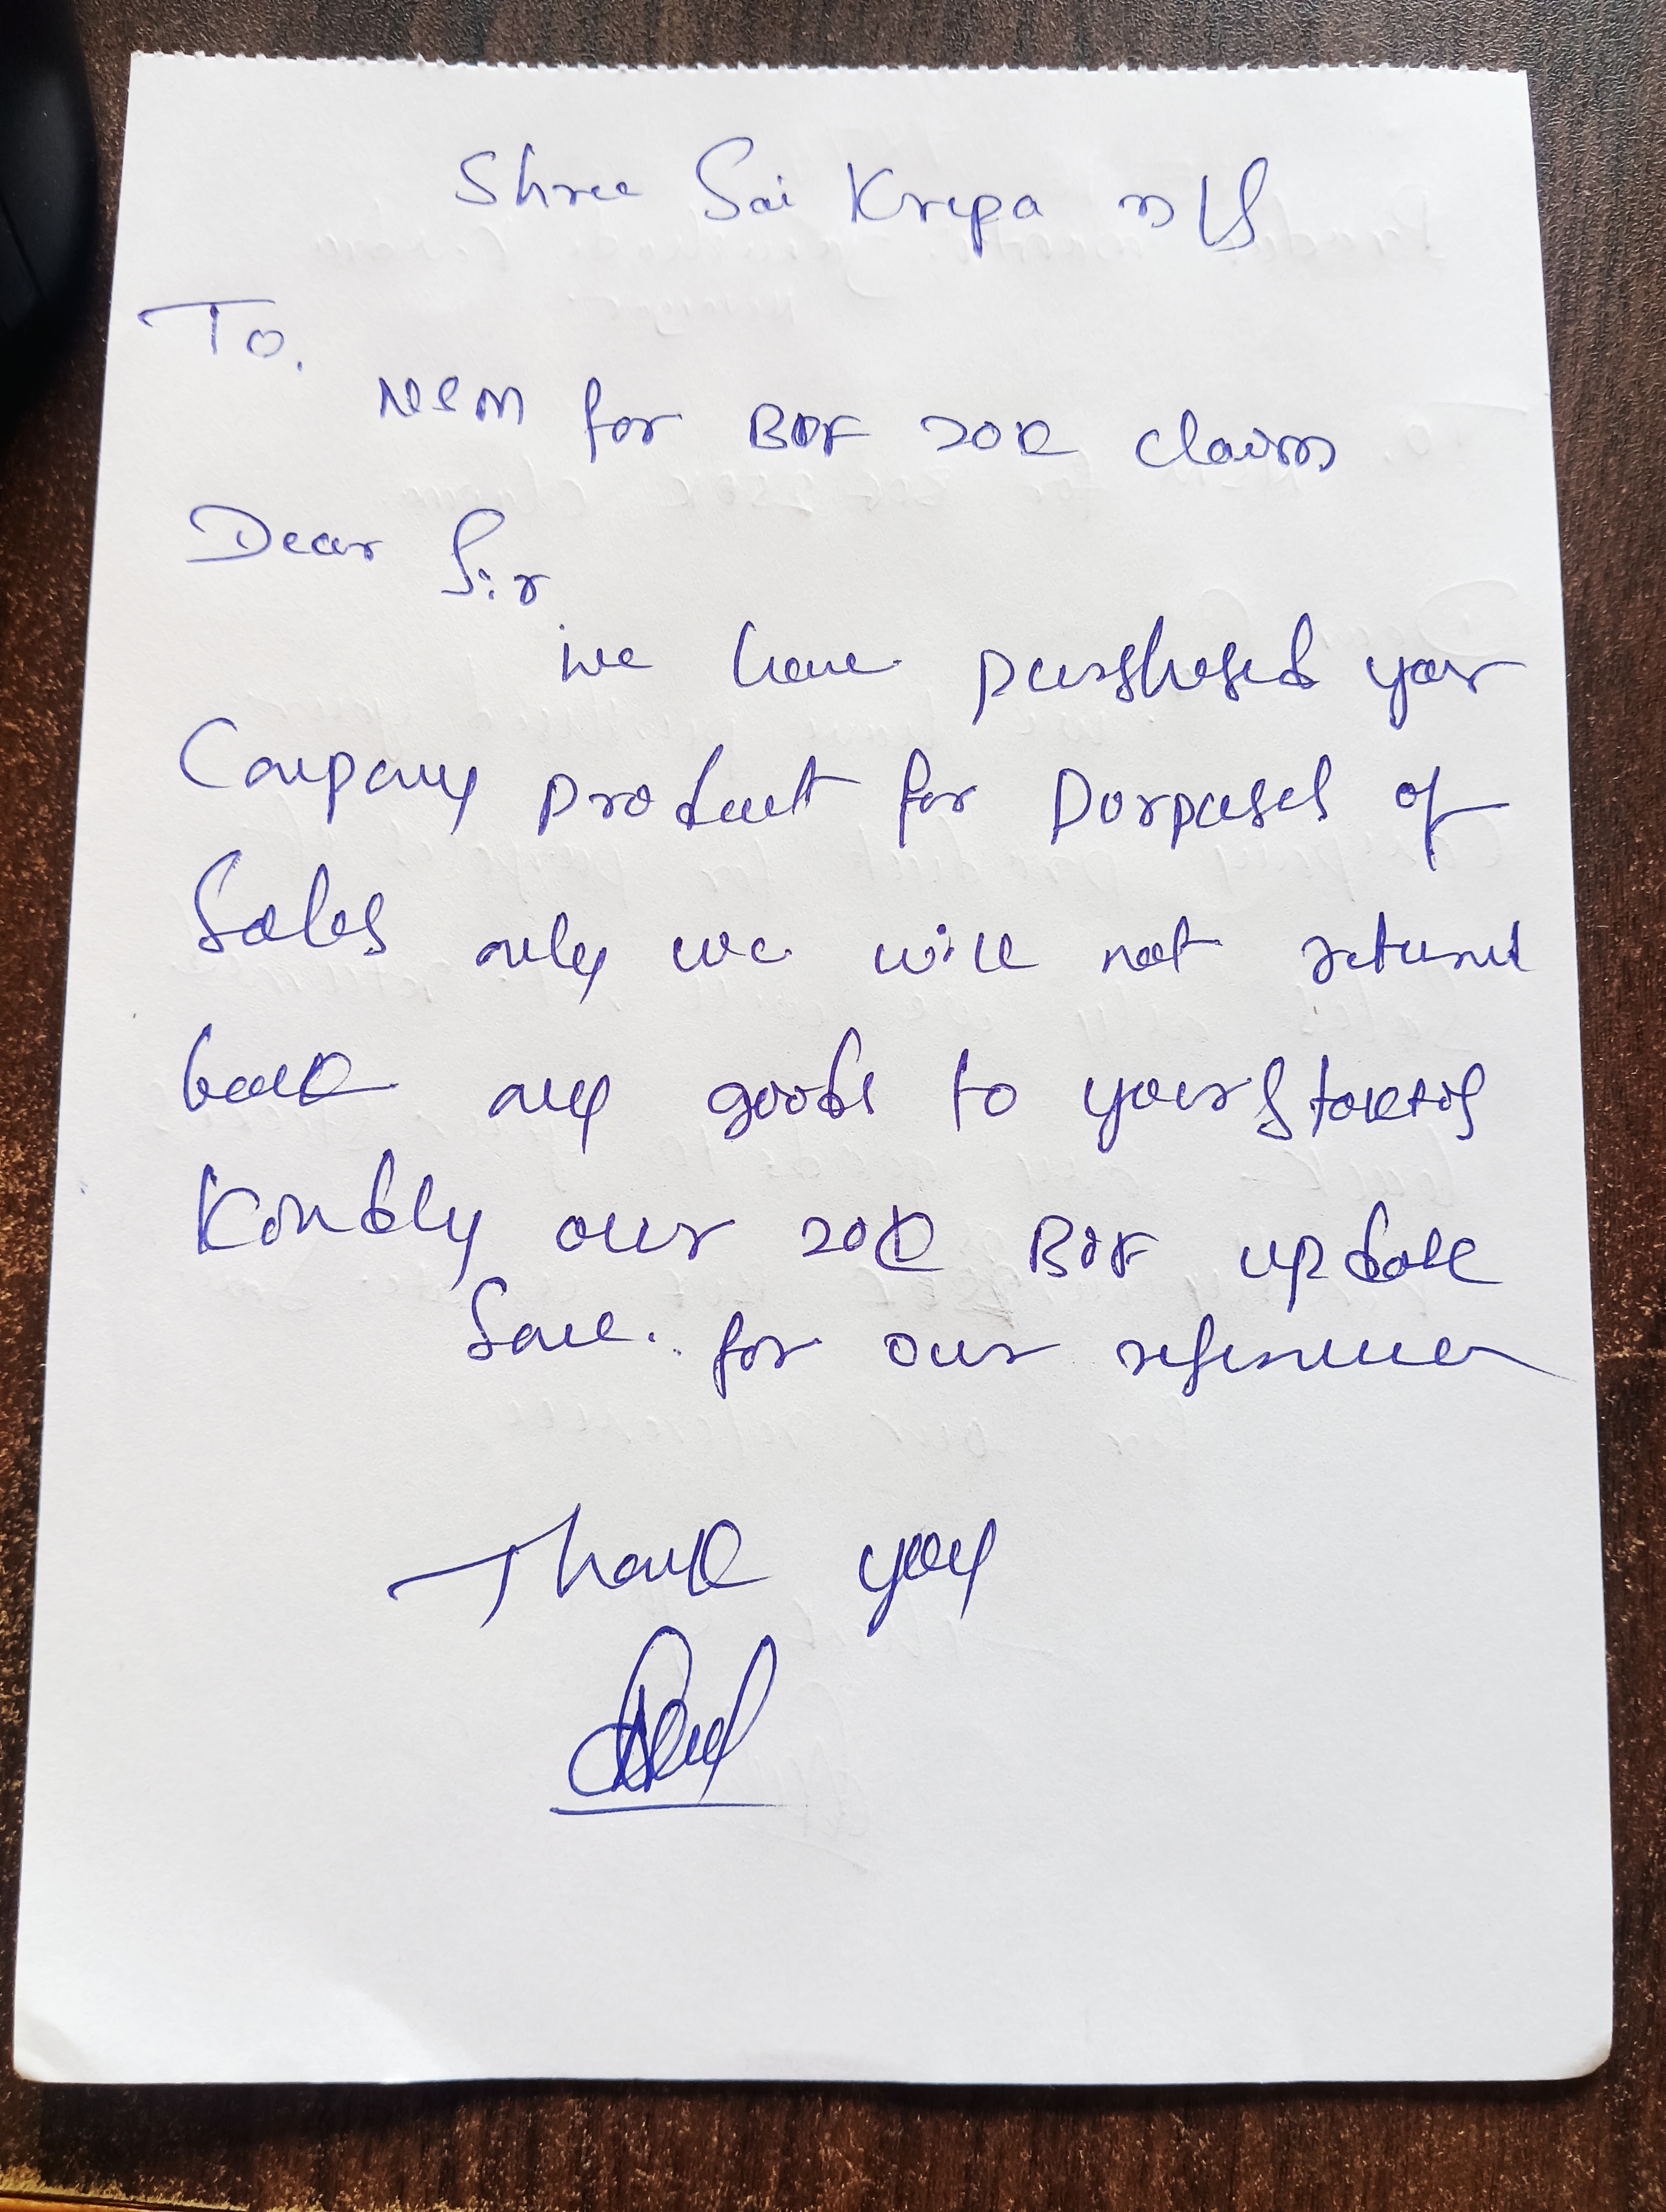 Shree Sai Krupa m/s
To.
NSM for BDF 20K claim
Dear Sir
we have purshesed your
Company product for Porpuses of
Sales only we will not returnd
back any goods to your stokers
Kindly our 20K BDF update
Same. for our referance
Thank you